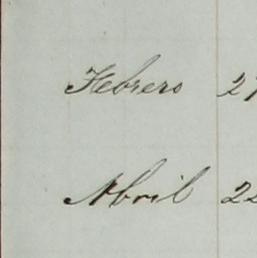 Febrero 27
Abril 22